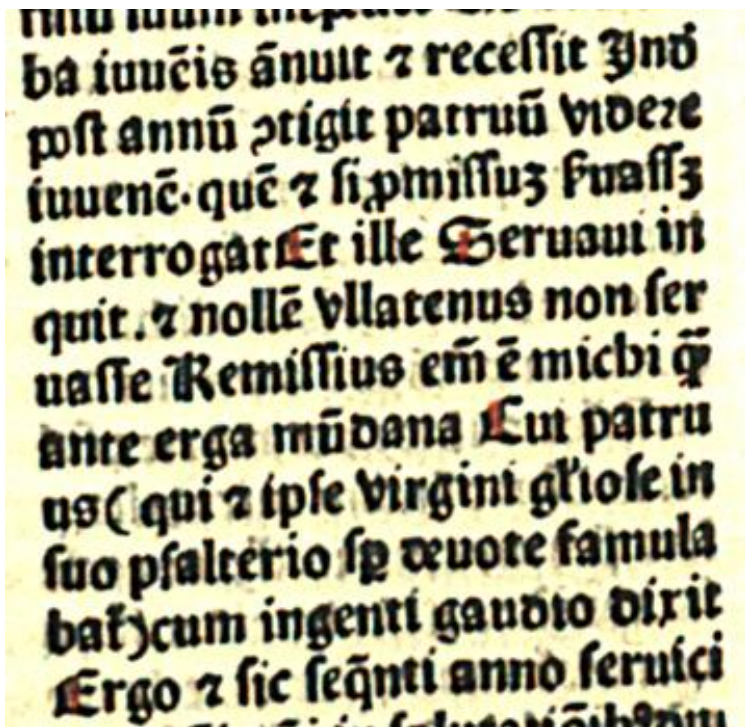 ba iuuēis ānuit ⁊ receſſit Jnð
poſt annū ꝯtigit patruū videre
iuuenē. quē ⁊ ſi ꝓmiſſuꝫ ſ̓uaſſꝫ
interrogat Et ille Seruaui in
quit. ⁊ nollē vllatenus non ſer
uaſſe Remiſſius em̄ ē michi ꝙ̄
ante erga mūdana Cui patru
us ( qui ⁊ ipſe virgini gl̓ioſe in
ſuo pſalterio ſꝑ deuote famula
bat̓) cum ingenti gaudio dixit
Ergo ⁊ ſic ſeq̄nti anno ſeruici